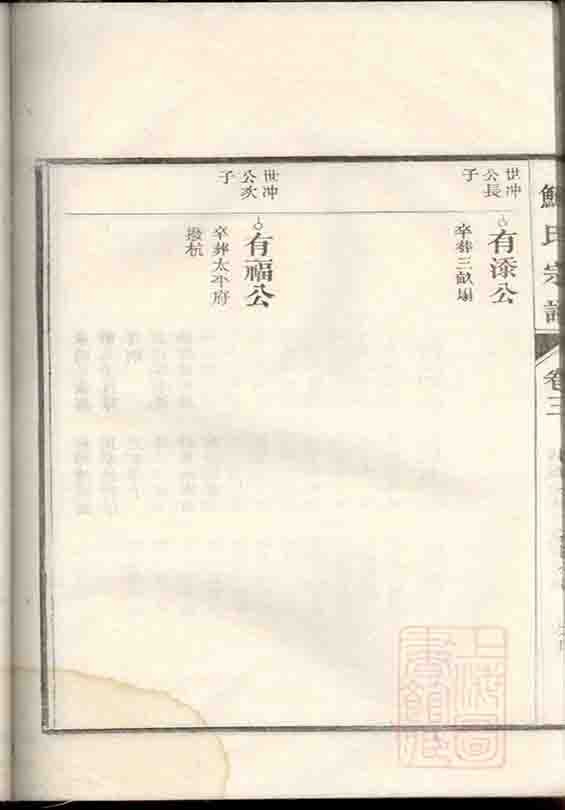 氏宗譜
卷三
世冲
公長
子
有添公
卒葬三畝塲
世冲
公次
子
有福公
卒葬太平府
撥杭
上海圖
書館藏